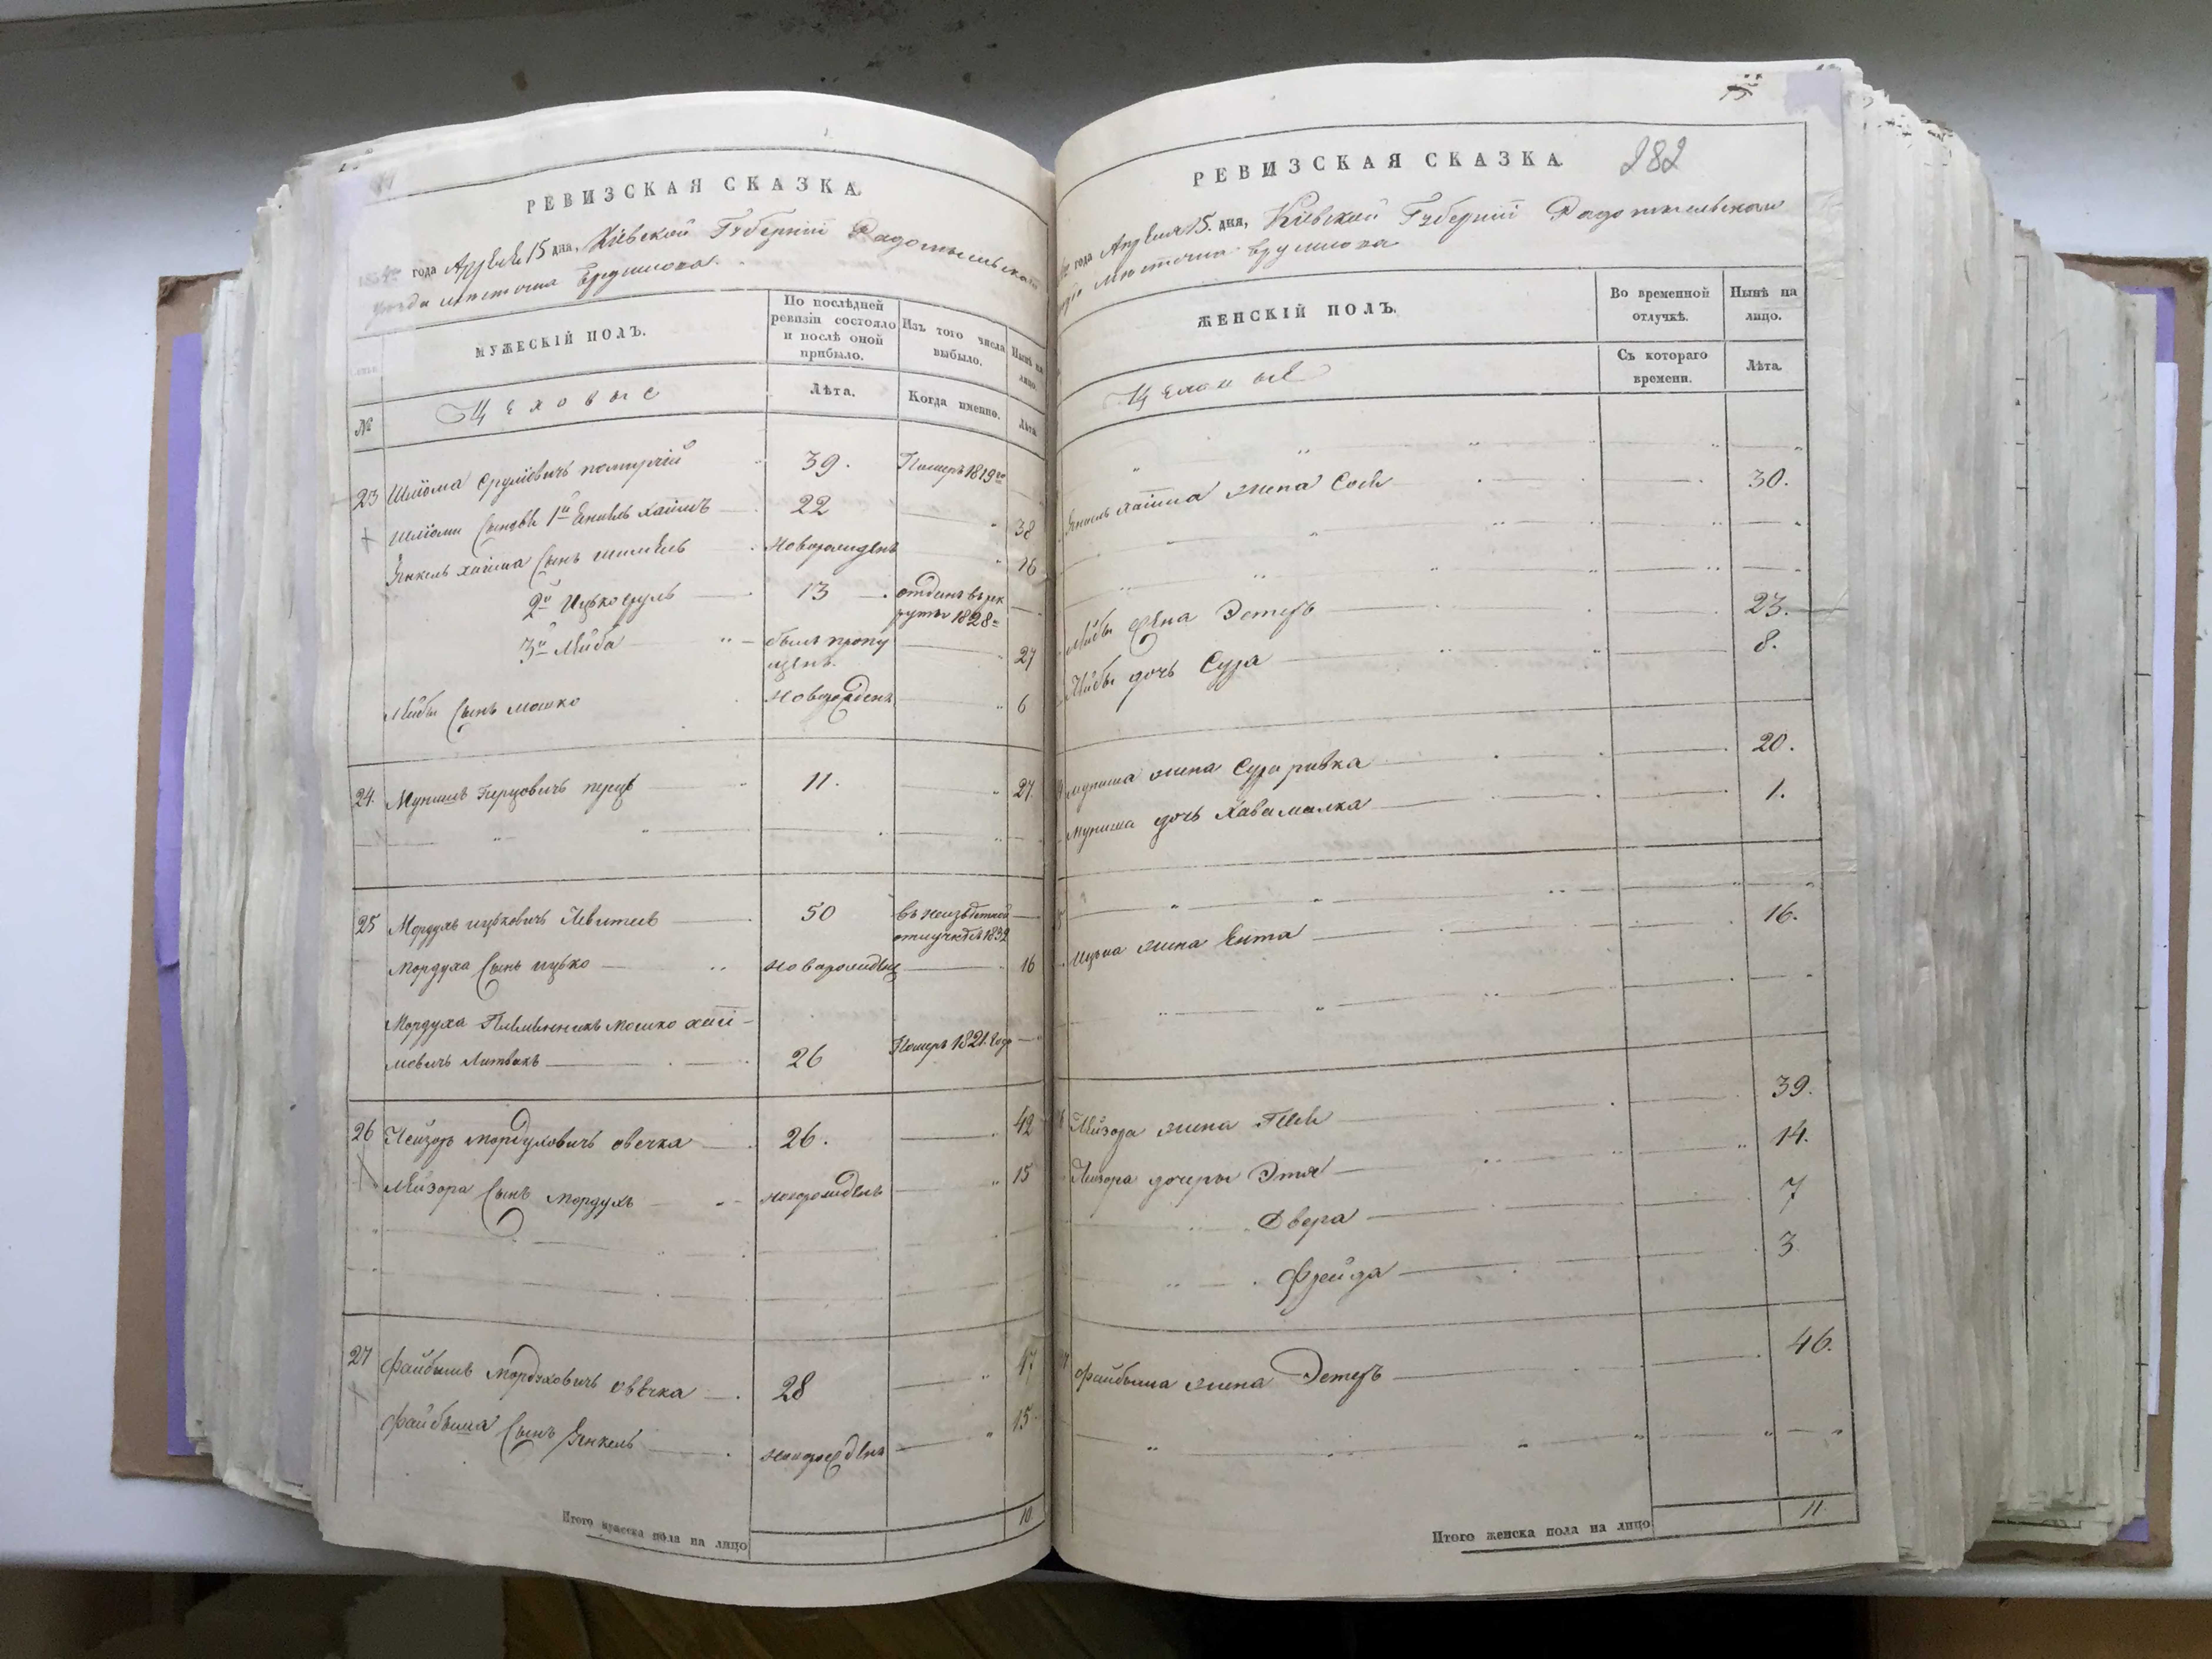 РЕВИЗСКАЯ СКАЗКА.
года Апреля 15 дня, Кіевской Губерніи Радомысльскаго
уезда местечка Брусилова
МУЖЕСКІЙ ПОЛЪ.
По послѣдней ревизіи состояло и послѣ оной прибыло.
Изъ того числа выбыло.
Нынѣ на лицо.
№
Цеховые
Лѣта.
Когда именно.
Лѣта
23 Шлiома Сруліовичъ 39. Померъ 1819го
Шлiомы Сыновья 1й Янкель Хаимъ 22 38
Янкель Хаима Сынъ Шмиль новорожденъ 16
2й Ицко Сруль 13 отданъ в рекруты 1828
3й Лейба былъ пропущенъ 27
Лейбы Сынъ Мошко новорожденъ 6
24. Мунишъ Герцовичъ 11. 27
25 Мордухъ Ицковичъ Левитъ 50 въ неизвестной отлучке 1832
Мордуха Сынъ Ицько новорожденъ 16
Мордуха Племянникъ Мошко Хаи-
мовичъ Литвакъ 26 Померъ 1821 года
26 Лейзоръ Мордуховичъ Овечка 26. 42
Лейзора Сынъ Мордухъ новорожденъ 15
27 Файбишъ Мордуховичъ Овечка 28 47
Файбиша Сынъ Янкель новорожденъ 15
Итого мужеска пола на лицо 10
282
РЕВИЗСКАЯ СКАЗКА.
года Апреля 15. дня, Кіевской Губерніи Радомысльскаго
местечка Брусилова
ЖЕНСКІЙ ПОЛЪ.
Во временной отлучкѣ.
Нынѣ на лицо.
Цеховые
Съ котораго времени.
Лѣта.
Янкель Хаима жена Сося 30.
Лейбы жена Эстеръ 23.
Лейбы дочь Сура 8.
Муниша жена Сура Ривка 20.
Муниша дочь Хава Малка 1.
Ицька жена Ента 16.
Лейзора жена Песя 39.
Лейзора дочери Этя 14.
Двера 7
Фрейда 3
Файбиша жена Эстеръ 46.
Итого женска пола на лицо 11.